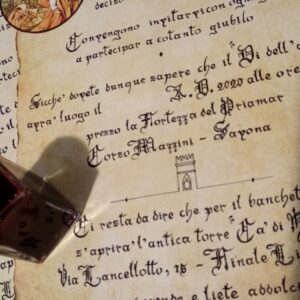 decizo
Convengono inpitarpi con ogni
a partecipar a cotanto giubilo
Sicchè dovete dunque sapere che il "Dì dell'e
A. D. 2020 alle ore
avrà luogo il
prezzo la Fortezza del Priamar
Corzo Mazzini - Savona
Ci resta da dire che per il banchet
s'aprirà l'antica torre "Ca' di
Via Lancellotto, - Finale Li
e liete addolc